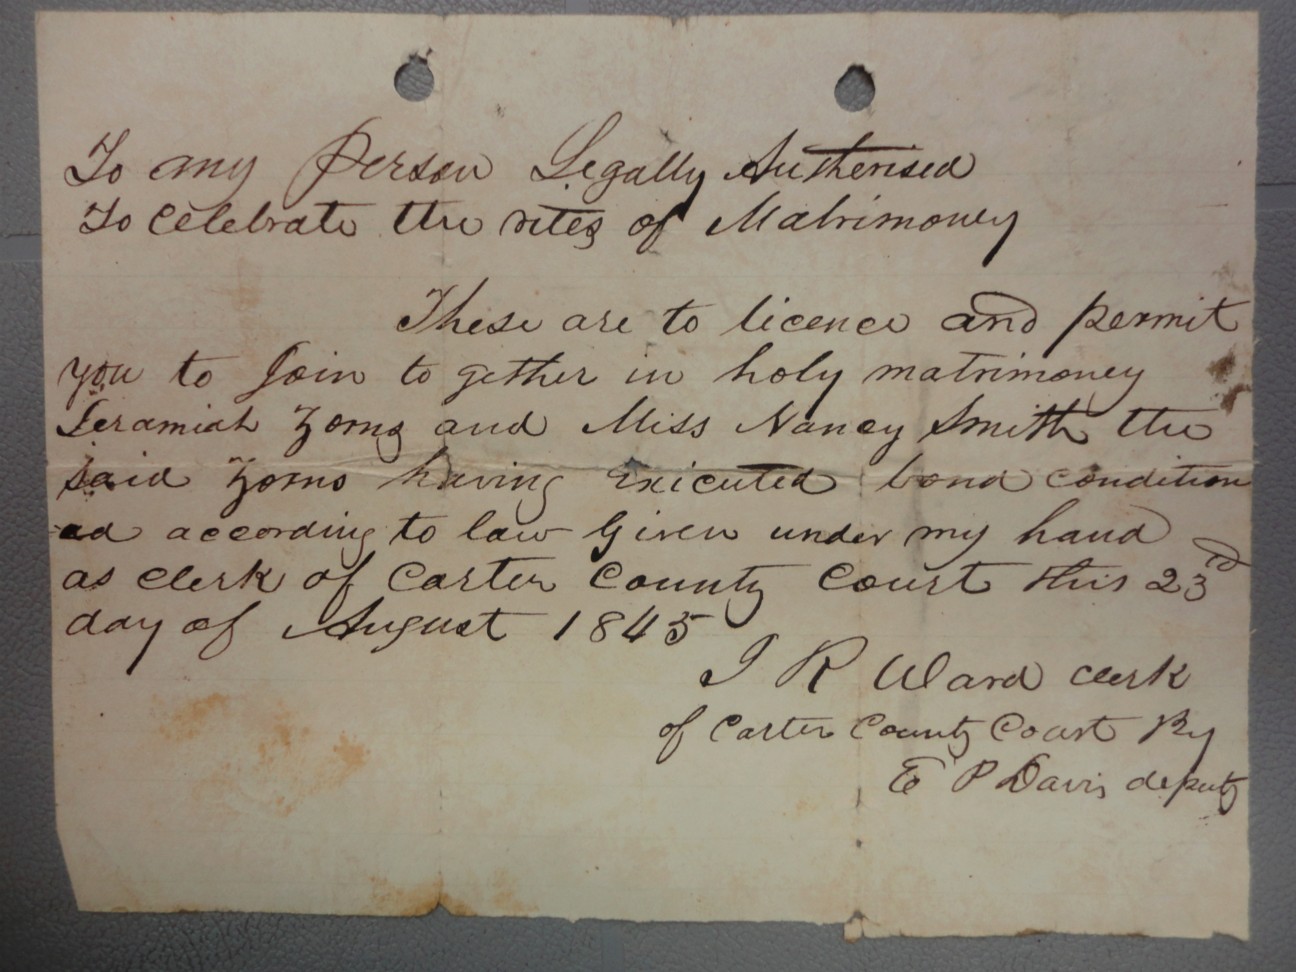 To any Person Legally Autherised
To celebrate the rites of Matrimoney
These are to licence and permit
you to Join to gether in holy matrimoney
Jeramiah Zorns and Miss Nancy Smith the
said Zorns having Exicuted bond condition
ed according to law Given under my hand
as clerk of Carter County Court this 23rd
day of August 1845
J R Ward clerk
of Carter County Court By
E P Davis deputy